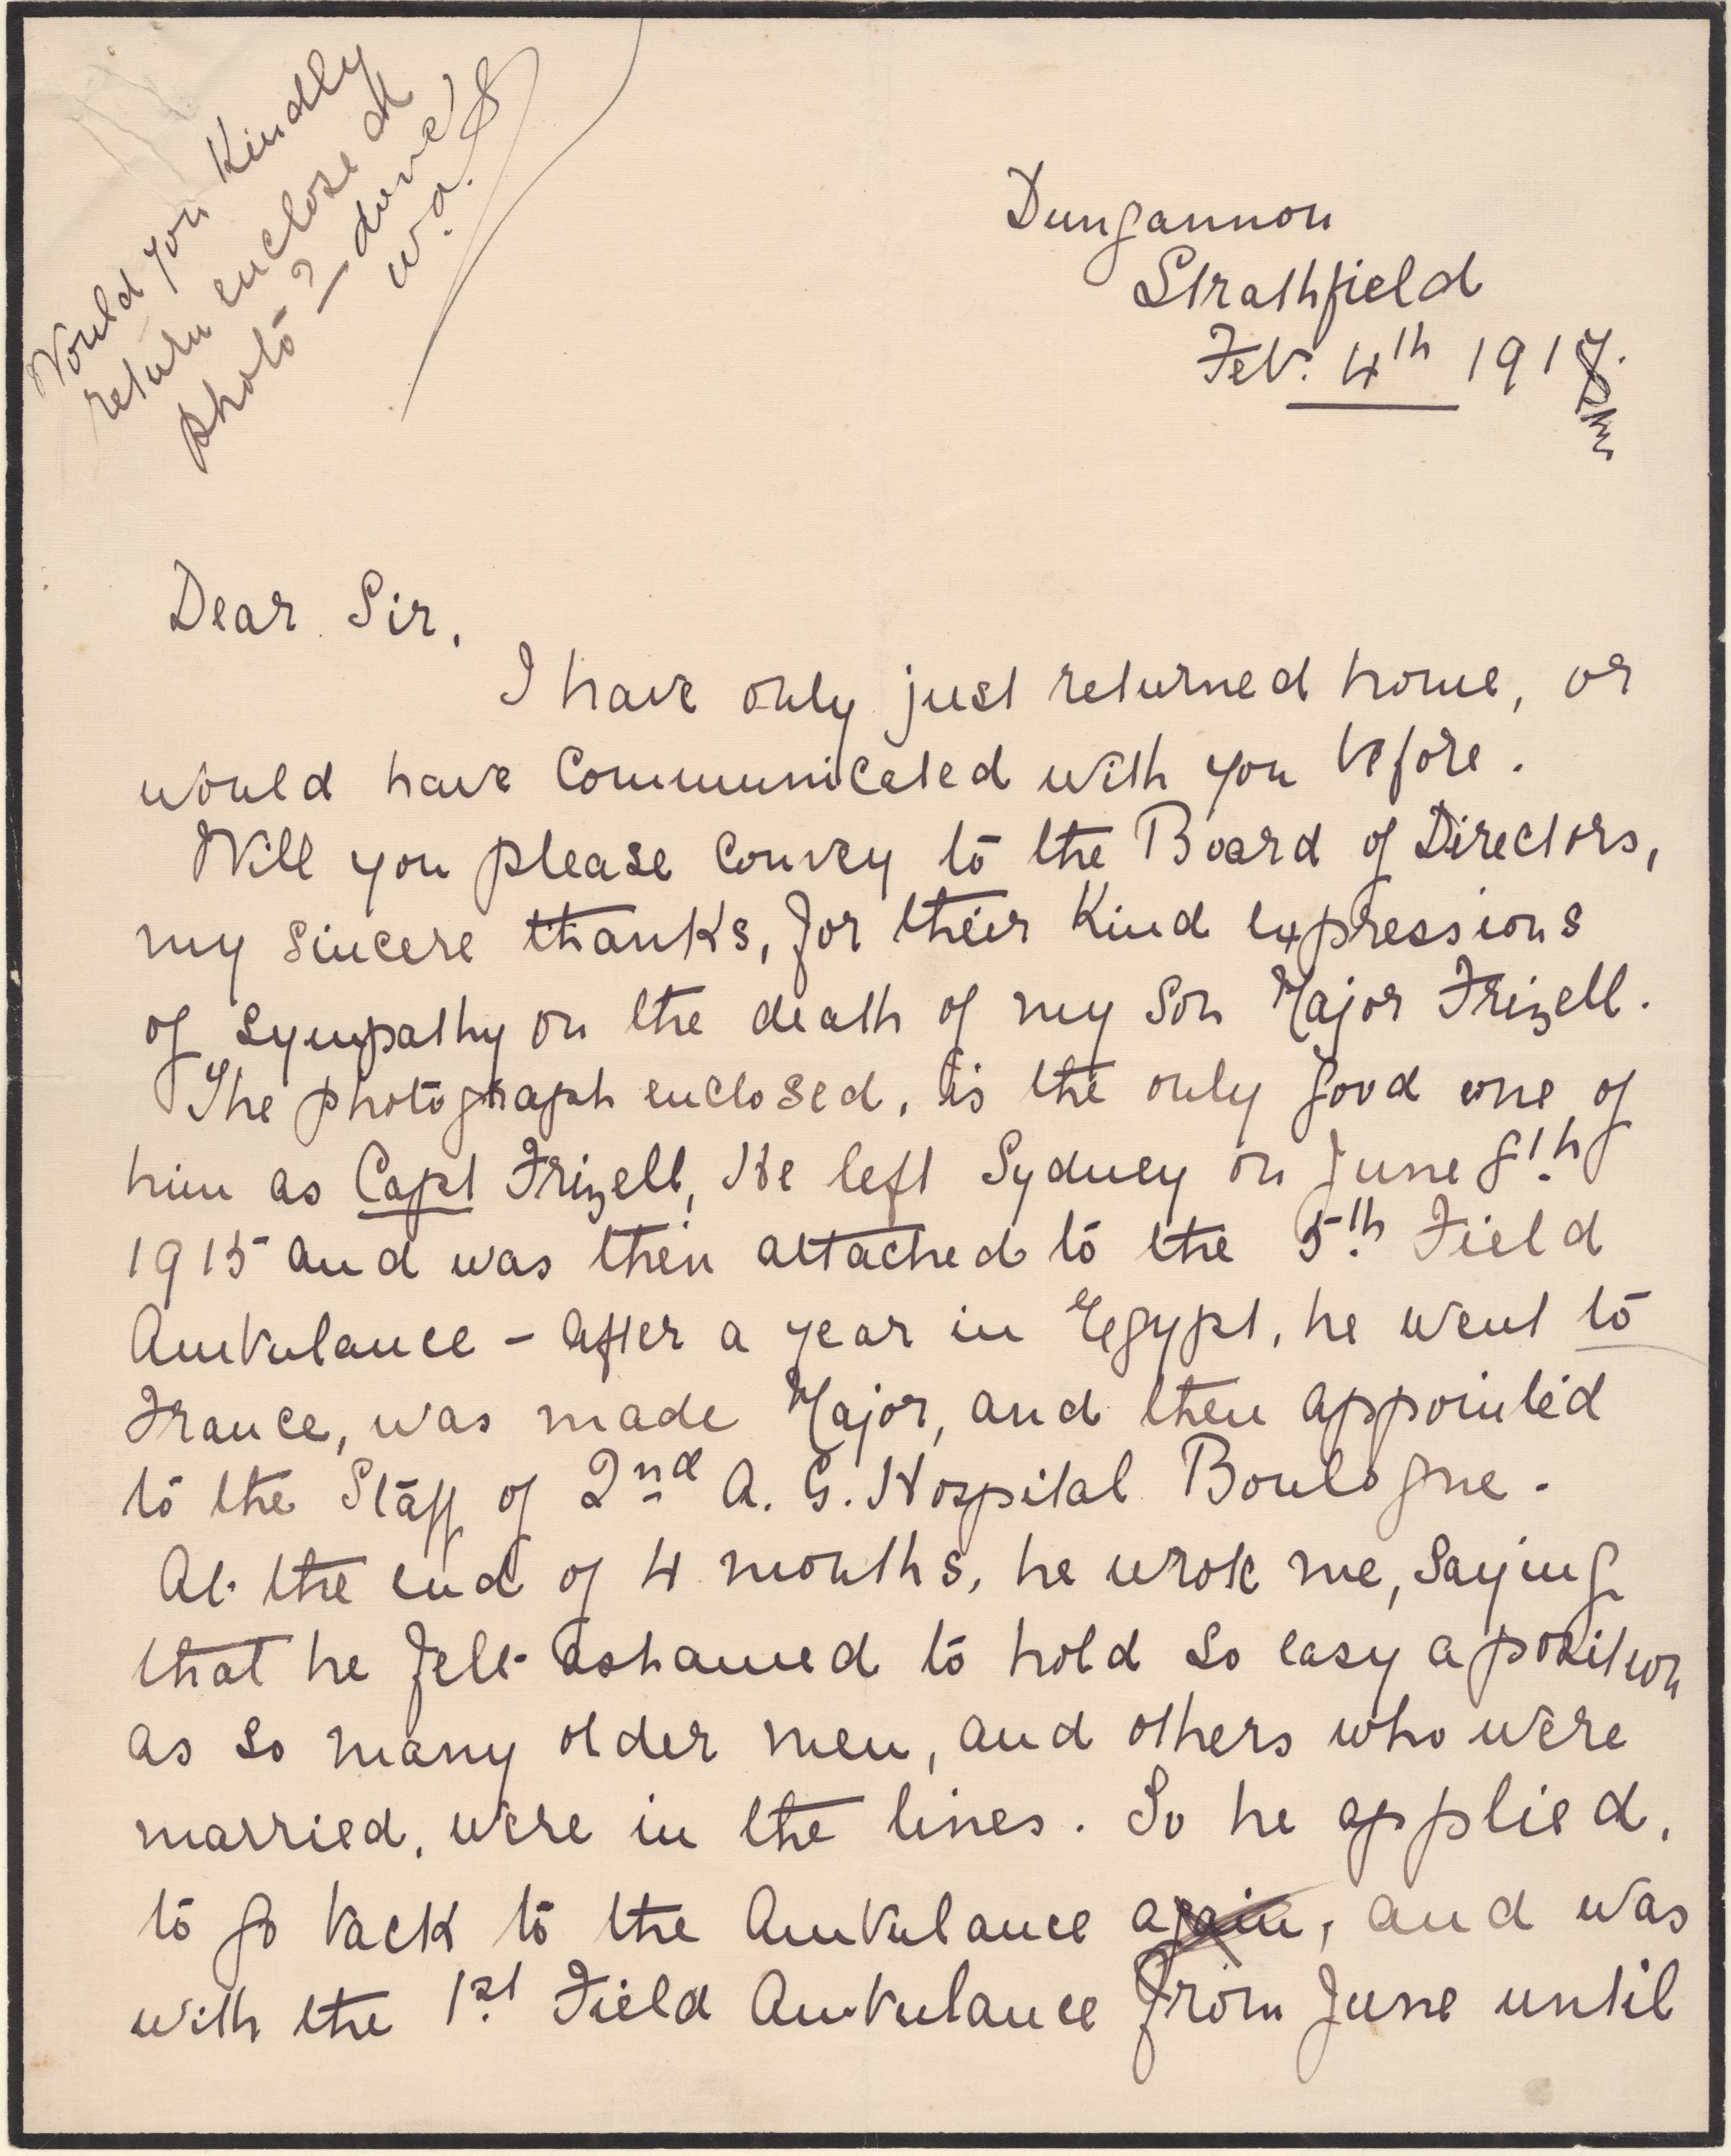 Would you Kindly
return enclosed
photo? — done
W.A.
Dungannon
Strathfield
Feb. 4th 1918.
Dear Sir,
I have only just returned home, or
would have communicated with you before.
Will you please convey to the Board of Directors,
my sincere thanks, for their Kind expressions
of sympathy on the death of my Son Major Frizell.
The photograph enclosed, is the only good one of
him as Capt Frizell, He left Sydney on June 8th
1915 and was then attached to the 5th Field
Ambulance - after a year in Egypt, he went to
France, was made Major, and then appointed
to the Staff of 2nd A. G. Hospital Boulogne -
At the end of 4 months, he wrote me, saying
that he felt ashamed to hold so easy a position
as so many older men, and others who were
married, were in the lines. So he applied,
to go back to the Ambulance again, and was
with the 1st Field Ambulance from June until